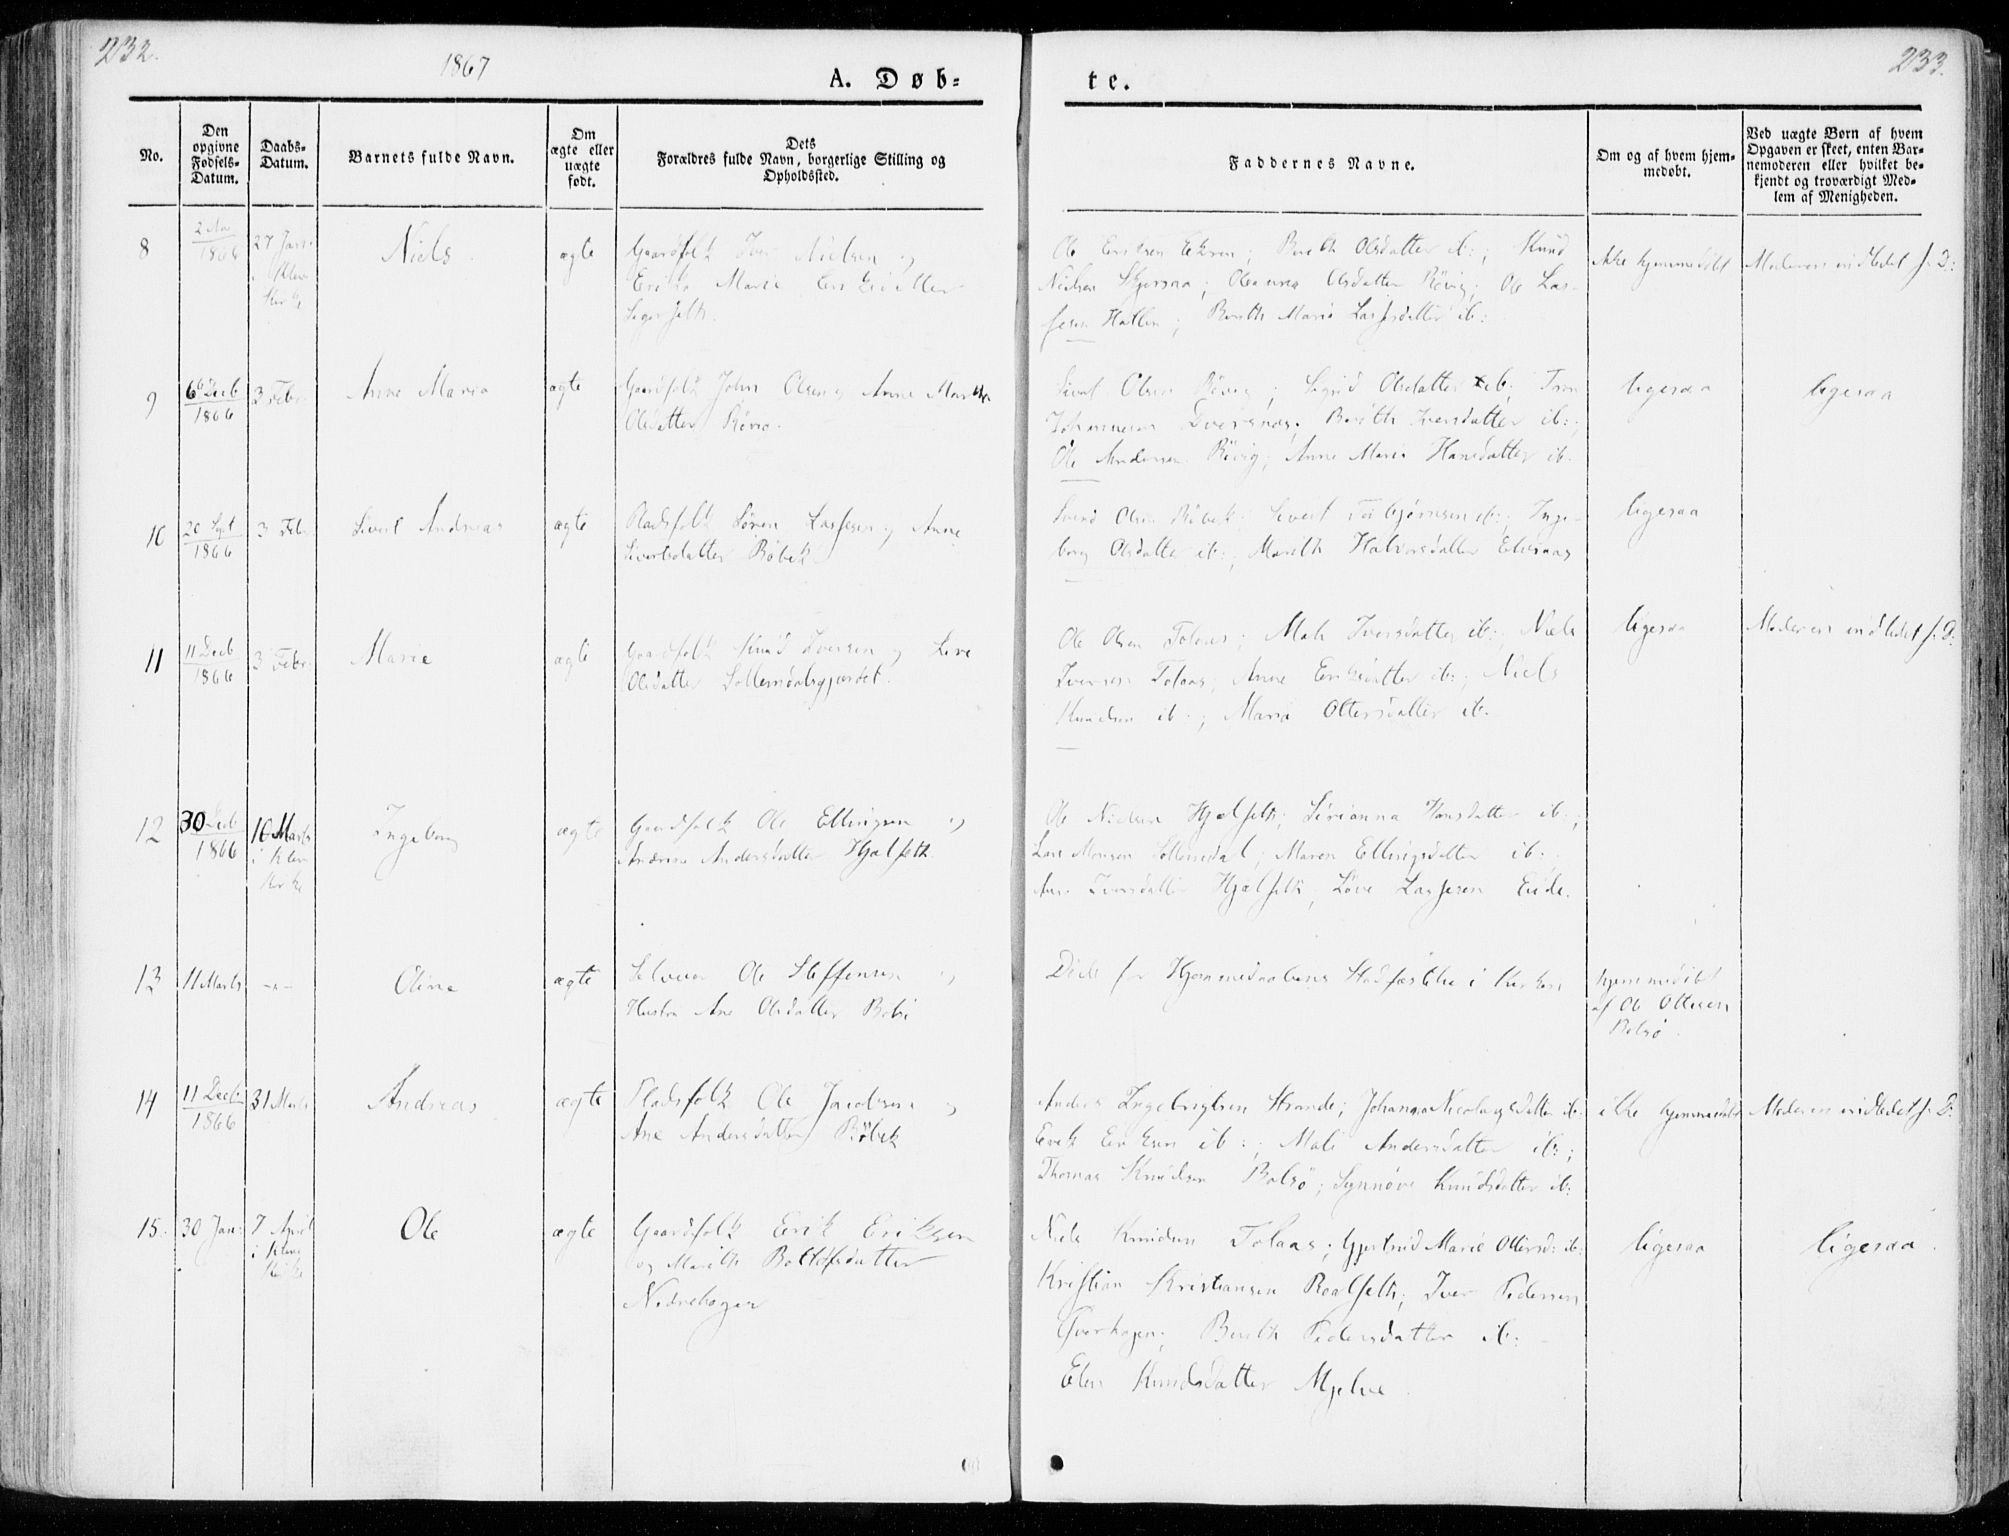 232.
1867
A. Døb=
te.
233.
No.
Den opgivne Fødsels-Datum.
Daabs-Datum.
Barnets fulde Navn.
Om ægte eller uægte født.
Dets Forældres fulde Navn, borgerlige Stilling og Opholdssted.
Faddernes Navne.
Om og af hvem hjemmedøbt.
Ved uægte Børn af hvem Opgaven er skeet, enten Barnemoderen eller hvilket bekjendt og troværdigt Medlem af Menigheden.
8
1866
27 Jan:
i Klev
Kirke
Niels
ægte
Gaardfolk Iver Nielsen og
Marie Eriksdatter
Ole Eriksen Ekren; Berith Olsdatter ib:; Knud
Nielsen; Olsdatter Røvig; Ole Las-
sesen Hallen; Berith Marie Lassesdatter ib:
ikke hjemmedøbt
Moderen indledet s. D:
9
6 Decb
1866
3 Febr
Anne Maria
ægte
Gaardfolk John Olsen og Anne Martha
Olsdatter Røvig.
Sivert Olsen Røvig; Sigrid Olsdatter ib; Tron
Johannesen; Berith Iversdatter ib:;
Ole Andersen Røvig; Anne Maria Hansdatter ib.
ligesaa
ligesaa
10
20 Sept
1866
3 Febr
Sivert Andreas
ægte
Pladsfolk Sören Lassesen og Anne
Sivertsdatter Røbek
Olsen Røbek; Sivert Torbjørnsen ib:; Inge-
borg Olsdatter ib:; Marith Halvorsdatter
ligesaa
11
11 Decb
1866
3 Febr.
Marie
ægte
Gaardfolk Knud Iversen og
Olsdatter Sollemdalsgjærdet.
Ole Olsen Tolaas; Mali Iversdatter ib:; Niels
Iversen Tolaas; Anne Eriksdatter ib:; Niels
Knudsen ib:; Maria Ottersdatter ib.
ligesaa
Moderen indledet s. D:
12
30 Decb
1866
10 Marts
i Klev
Kirke
Ingeborg
ægte
Gaardfolk Ole Ellingsen og
Andrine Andersdatter Hjelseth.
Ole Nielsen Hjelseth; Sirianna Hansdatter ib:;
Lars Monsen Sollemdal; Maren Ellingsdatter ib:;
Iversdatter Hjelseth; Lassesen Eide.
13
11 Marts
-"-
Oline
ægte
Ole Steffensen og
Hustru Ane Olsdatter Bolsø
Døde før Hjemmedaabens Stadfæstelse i Kirken
hjemmedøbt
af Ole Ottesen
Bolsø.
14
11 Decb.
1866
31 Marts
Andreas
ægte
Pladsfolk Ole Jacobsen og
Ane Andersdatter Røbek
Anders Ingebrigtsen Strande; Johanna Nicolaysdatter ib.
Erik Eriksen ib:; Mali Andersdatter ib:;
Thomas Knudsen Bolsø; Synnøve Knudsdatter ib:
ikke hjemmedøbt
Moderen indledet s. D:
15.
30 Jan:
7 April
i Klev
Kirke
Ole
ægte
Gaardfolk Erik Eriksen
og Marith Bottolfsdatter
Nedrehagen
Niels Knudsen Tolaas; Gjertrud Marie Ottersd: ib.
Kristian Kristiansen Roalseth; Iver Pedersen
Øverhagen; Berith Pedersdatter ib:
Elen Knudsdatter Mjelve.
ligesaa
ligesaa.